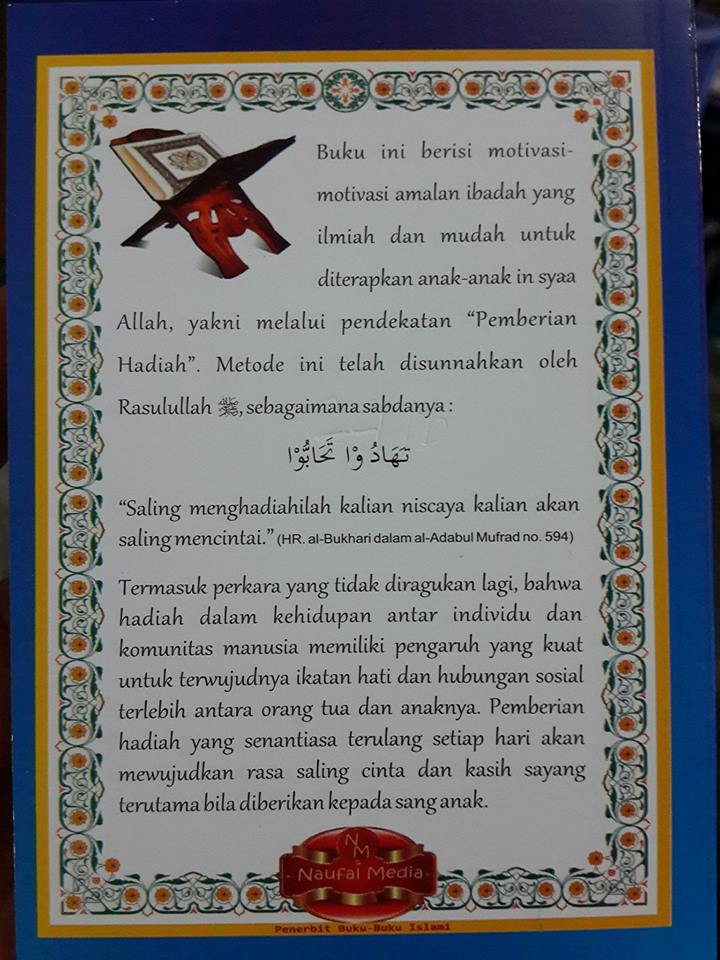 Buku ini berisi motivasi-
motivasi amalan ibadah yang
ilmiah dan mudah untuk
diterapkan anak-anak in syaa
Allah, yakni melalui pendekatan “Pemberian
Hadiah”. Metode ini telah disunnahkan oleh
Rasulullah ﷺ, sebagaimana sabdanya :
تَهَادُوْا تَحَابُّوْا
“Saling menghadiahilah kalian niscaya kalian akan
saling mencintai.” (HR. al-Bukhari dalam al-Adabul Mufrad no. 594)
Termasuk perkara yang tidak diragukan lagi, bahwa
hadiah dalam kehidupan antar individu dan
komunitas manusia memiliki pengaruh yang kuat
untuk terwujudnya ikatan hati dan hubungan sosial
terlebih antara orang tua dan anaknya. Pemberian
hadiah yang senantiasa terulang setiap hari akan
mewujudkan rasa saling cinta dan kasih sayang
terutama bila diberikan kepada sang anak.
NM
- Naufal Media -
Penerbit Buku-Buku Islami